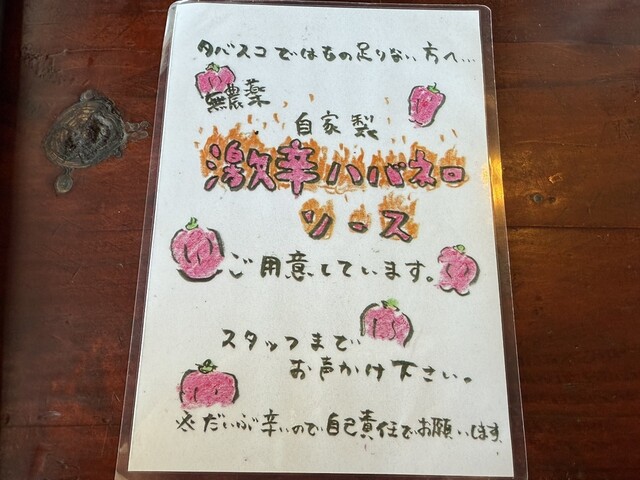 タバスコではもの足りない方へ…
無農薬
自家製
激辛ハバネロ
ソース
ご用意しています。
スタッフまで
お声かけ下さい。
※だいぶ辛いので自己責任でお願いします